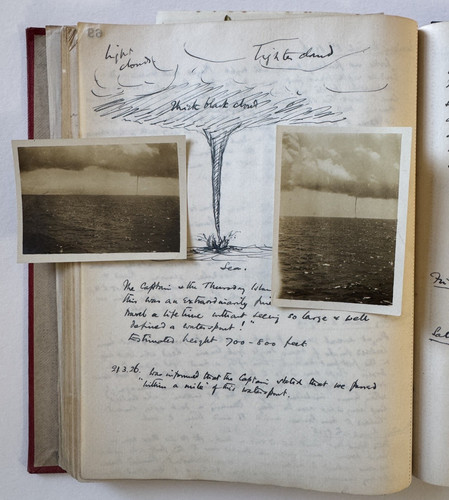 69
light
clouds
Lighter cloud
thick black cloud
Sea.
The Captain & the Thursday Islan
this was an extraordinarily fine
a lifetime without seeing so large & well
defined a waterspout!"
Estimated height 700-800 feet
21.3.26. Was informed that the Captain stated that we passed
"within a mile" of this waterspout.